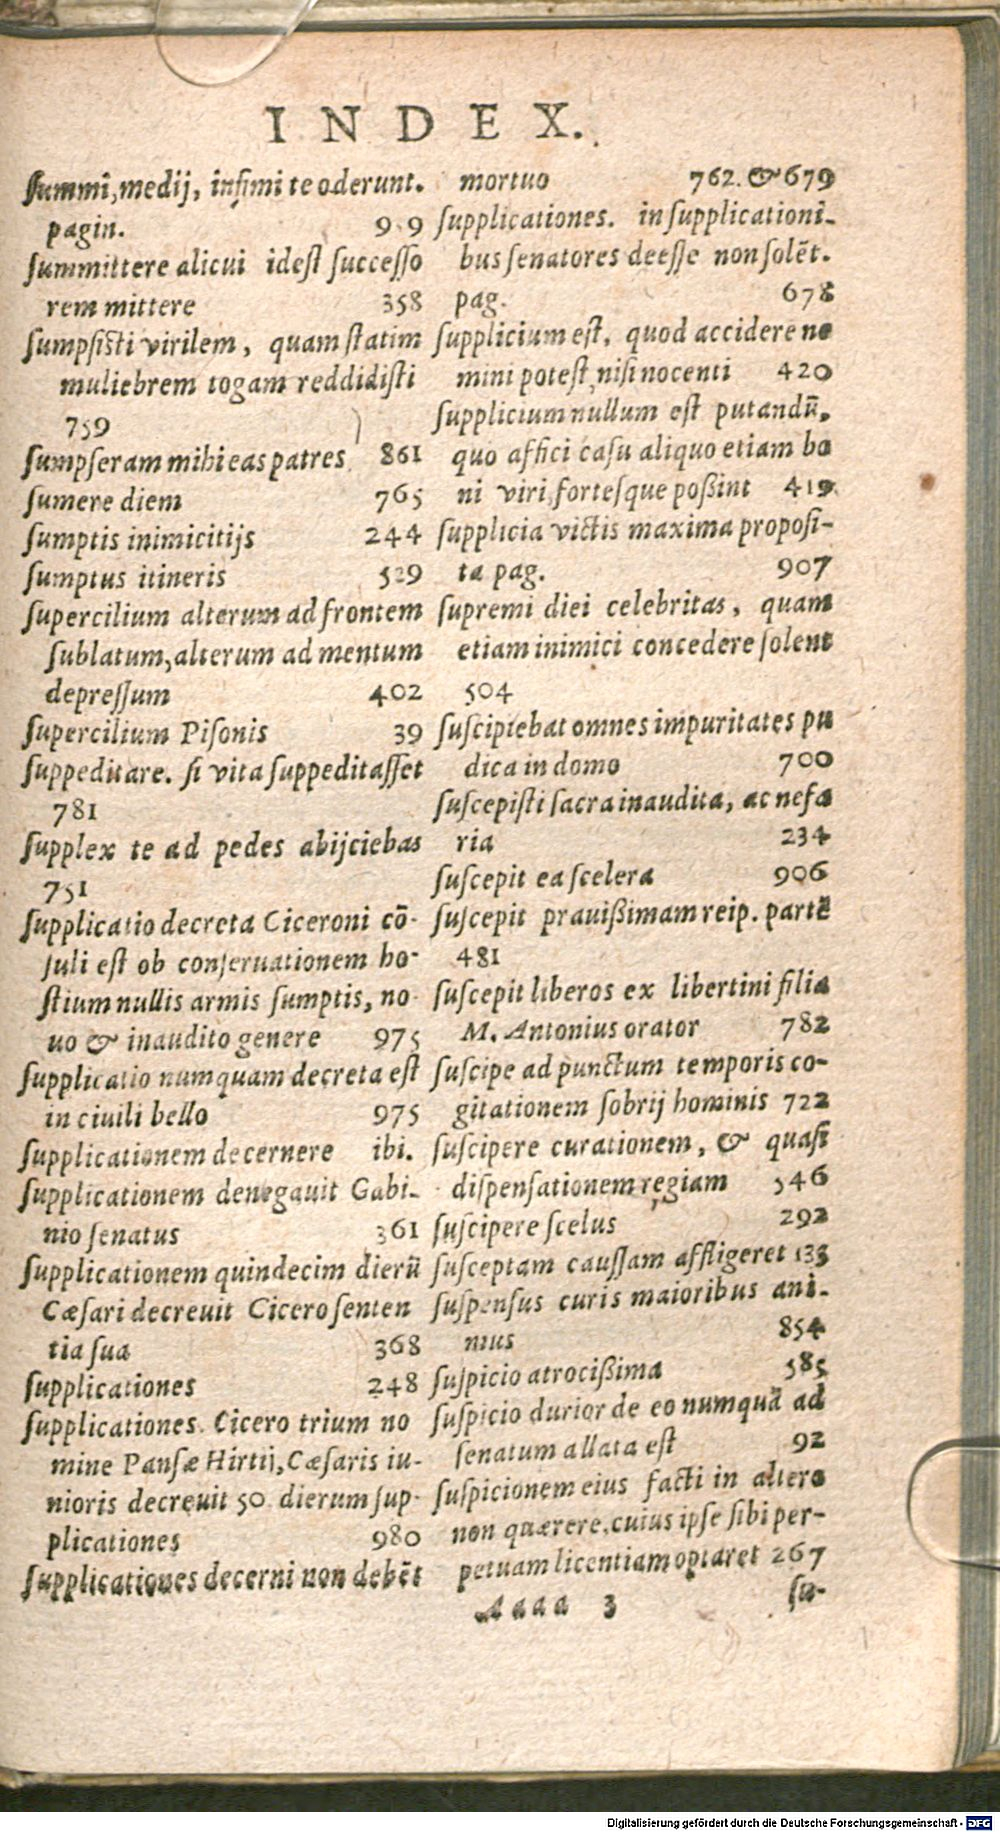 INDEX.
ſummi, medij, infimi te oderunt.
pagin. 9 9
ſummittere alicui ideſt ſucceſſo
rem mittere 358
ſumpſiſti virilem, quam ſtatim
muliebrem togam reddidiſti
759
ſumpſeram mihi eas patres 861
ſumere diem 765
ſumptis inimicitijs 244
ſumptus itineris 529
ſupercilium alterum ad frontem
ſublatum, alterum ad mentum
depreſſum 402
ſupercilium Piſonis 39
ſuppeditare. ſi vita ſuppeditaſſet
781
ſupplex te ad pedes abijciebas
751
ſupplicatio decreta Ciceroni cō-
ſuli eſt ob conſeruationem ho-
ſtium nullis armis ſumptis, no-
uo & inaudito genere 975
ſupplicatio numquam decreta eſt
in ciuili bello 975
ſupplicationem decernere ibi.
ſupplicationem denegauit Gabi-
nio ſenatus 361
ſupplicationem quindecim dierū
Cæſari decreuit Cicero ſenten
tia ſua 368
ſupplicationes 248
ſupplicationes. Cicero trium no
mine Panſæ Hirtij, Cæſaris iu-
nioris decreuit 50 dierum ſup-
plicationes 980
ſupplicationes decerni non debēt
mortuo 762. & 679
ſupplicationes. in ſupplicationi-
bus ſenatores deeſſe non ſolēt.
pag. 678
ſupplicium eſt, quod accidere ne
mini poteſt, niſi nocenti 420
ſupplicium nullum eſt putandū,
quo affici caſu aliquo etiam bo
ni viri, forteſque poßint 419
ſupplicia victis maxima propoſi-
ta pag. 907
ſupremi diei celebritas, quam
etiam inimici concedere ſolent
504
ſuſcipiebat omnes impuritates pu
dica in domo 700
ſuſcepiſti ſacra inaudita, ac nefa
ria 234
ſuſcepit ea ſcelera 906
ſuſcepit prauißimam reip. partē
481
ſuſcepit liberos ex libertini filia
M. Antonius orator 782
ſuſcipe ad punctum temporis co-
gitationem ſobrij hominis 722
ſuſcipere curationem, & quaſi
diſpenſationem regiam 546
ſuſcipere ſcelus 292
ſuſceptam cauſſam affligeret 133
ſuſpenſus curis maioribus ani-
mus 854
ſuſpicio atrocißima 585
ſuſpicio durior de eo numquā ad
ſenatum allata eſt 92
ſuſpicionem eius facti in altero
non quærere, cuius ipſe ſibi per-
petuam licentiam optaret 267
Aaaa 3 ſu-
Digitalisierung gefördert durch die Deutsche Forschungsgemeinschaft - DFG